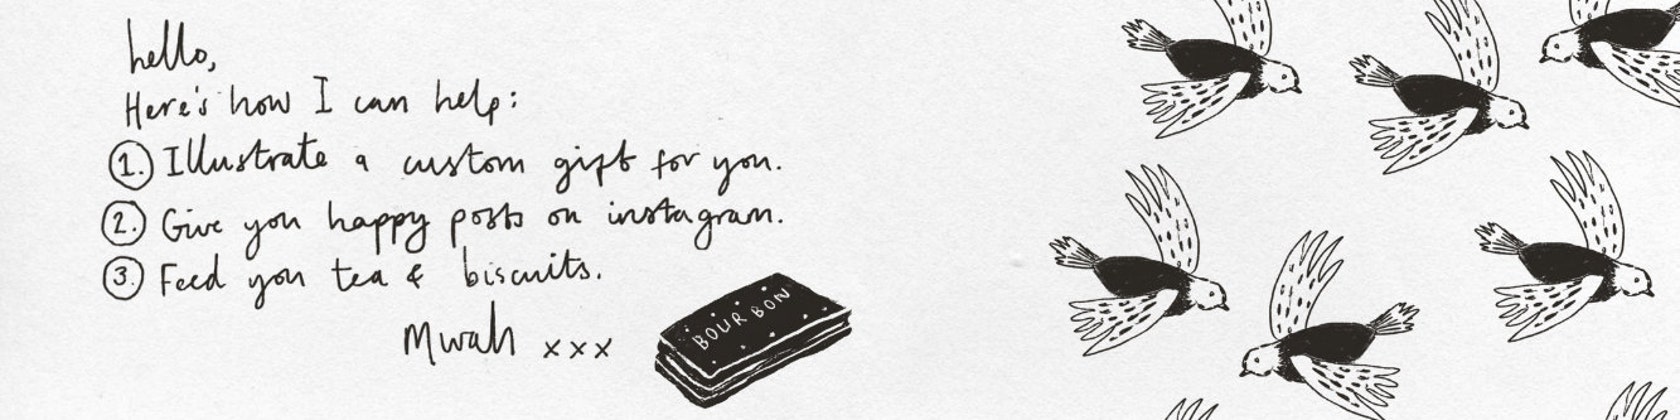 hello,
Here's how I can help:
1. Illustrate a custom gift for you.
2. Give you happy posts on instagram.
3. Feed you tea & biscuits.
Mwah xxx
BOURBON